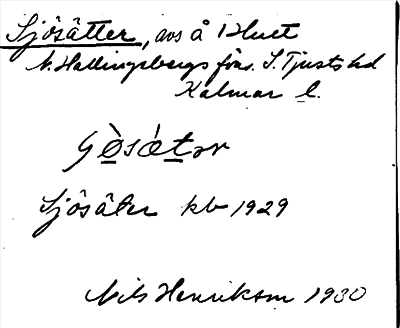 Sjösätter, avs å 1 Huet
N. Hallingebergs förs. S. Tjusts hd
Kalmar l.
Sjösäter kb 1929
Nils Henrikson 1930